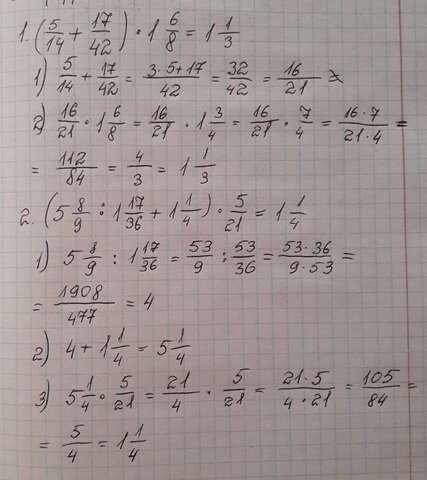 1. (5/14 + 17/42) · 1 6/8 = 1 1/3
1) 5/14 + 17/42 = (3·5+17)/42 = 32/42 = 16/21
2) 16/21 · 1 6/8 = 16/21 · 1 3/4 = 16/21 · 7/4 = (16·7)/(21·4) =
= 112/84 = 4/3 = 1 1/3
2. (5 8/9 : 1 17/36 + 1 1/4) · 5/21 = 1 1/4
1) 5 8/9 : 1 17/36 = 53/9 : 53/36 = (53·36)/(9·53) =
= 1908/477 = 4
2) 4 + 1 1/4 = 5 1/4
3) 5 1/4 · 5/21 = 21/4 · 5/21 = (21·5)/(4·21) = 105/84 =
= 5/4 = 1 1/4